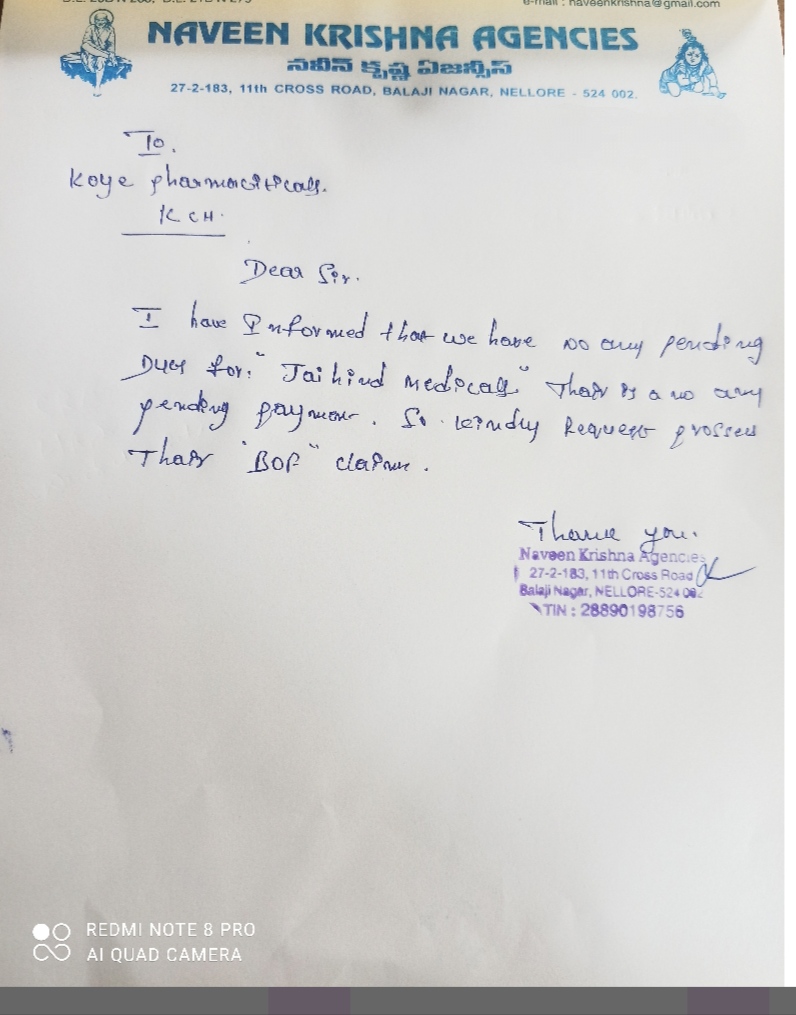 e-mail : naveenkrishna@gmail.com
NAVEEN KRISHNA AGENCIES
నవీన్ కృష్ణ ఏజన్సీస్
27-2-183, 11th CROSS ROAD, BALAJI NAGAR, NELLORE - 524 002.
To.
Koye pharmaciticals.
KCH.
Dear Sir.
I have Informed that we have no any pending
Dues for. "Jaihind Medicals" Thair is a no any
pending payment. So kindly Request prossess
Thair "BOF" claime.
Thank you.
Naveen Krishna Agencies
27-2-183, 11th Cross Road
Balaji Nagar, NELLORE-524 002
TIN : 28890198756
REDMI NOTE 8 PRO
AI QUAD CAMERA